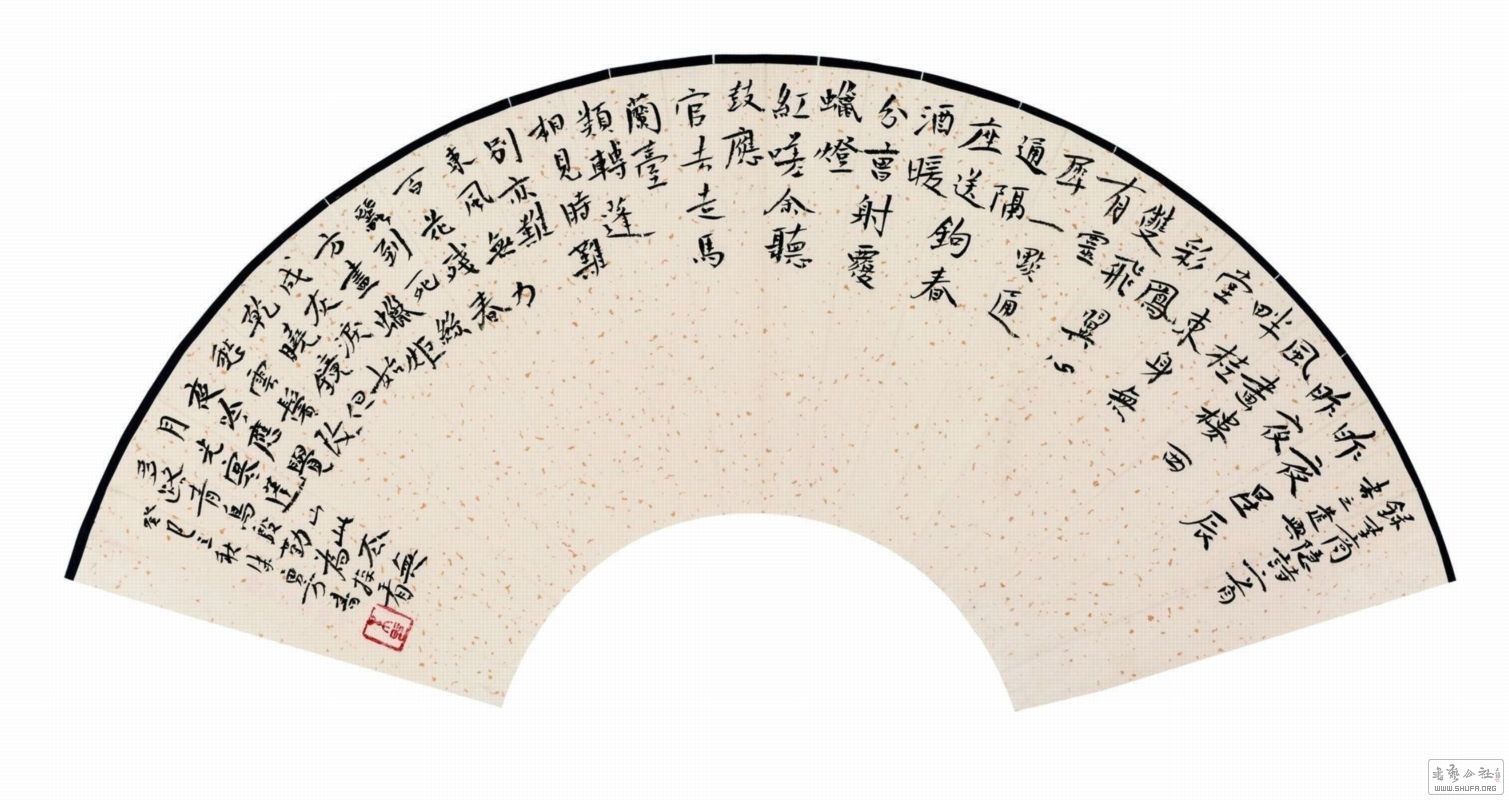 昨夜星辰
昨夜
風畫樓西
畔桂
堂東身無
彩鳳
雙飛翼心
有靈
犀一點通
通隔
座送鉤春
酒暖
分曹射覆
蠟燈
紅嗟余聽
鼓應
官去走馬
蘭臺
類轉蓬
相見時難
別亦難
東風無力
百花殘春
蠶到死絲
方盡蠟炬
成灰淚始
乾曉鏡但
愁雲鬢改
夜吟應覺
月光寒蓬山此去無
多路青鳥殷勤為探看
癸巳立秋
商隱詩二首
WWW.SHUFA.ORG